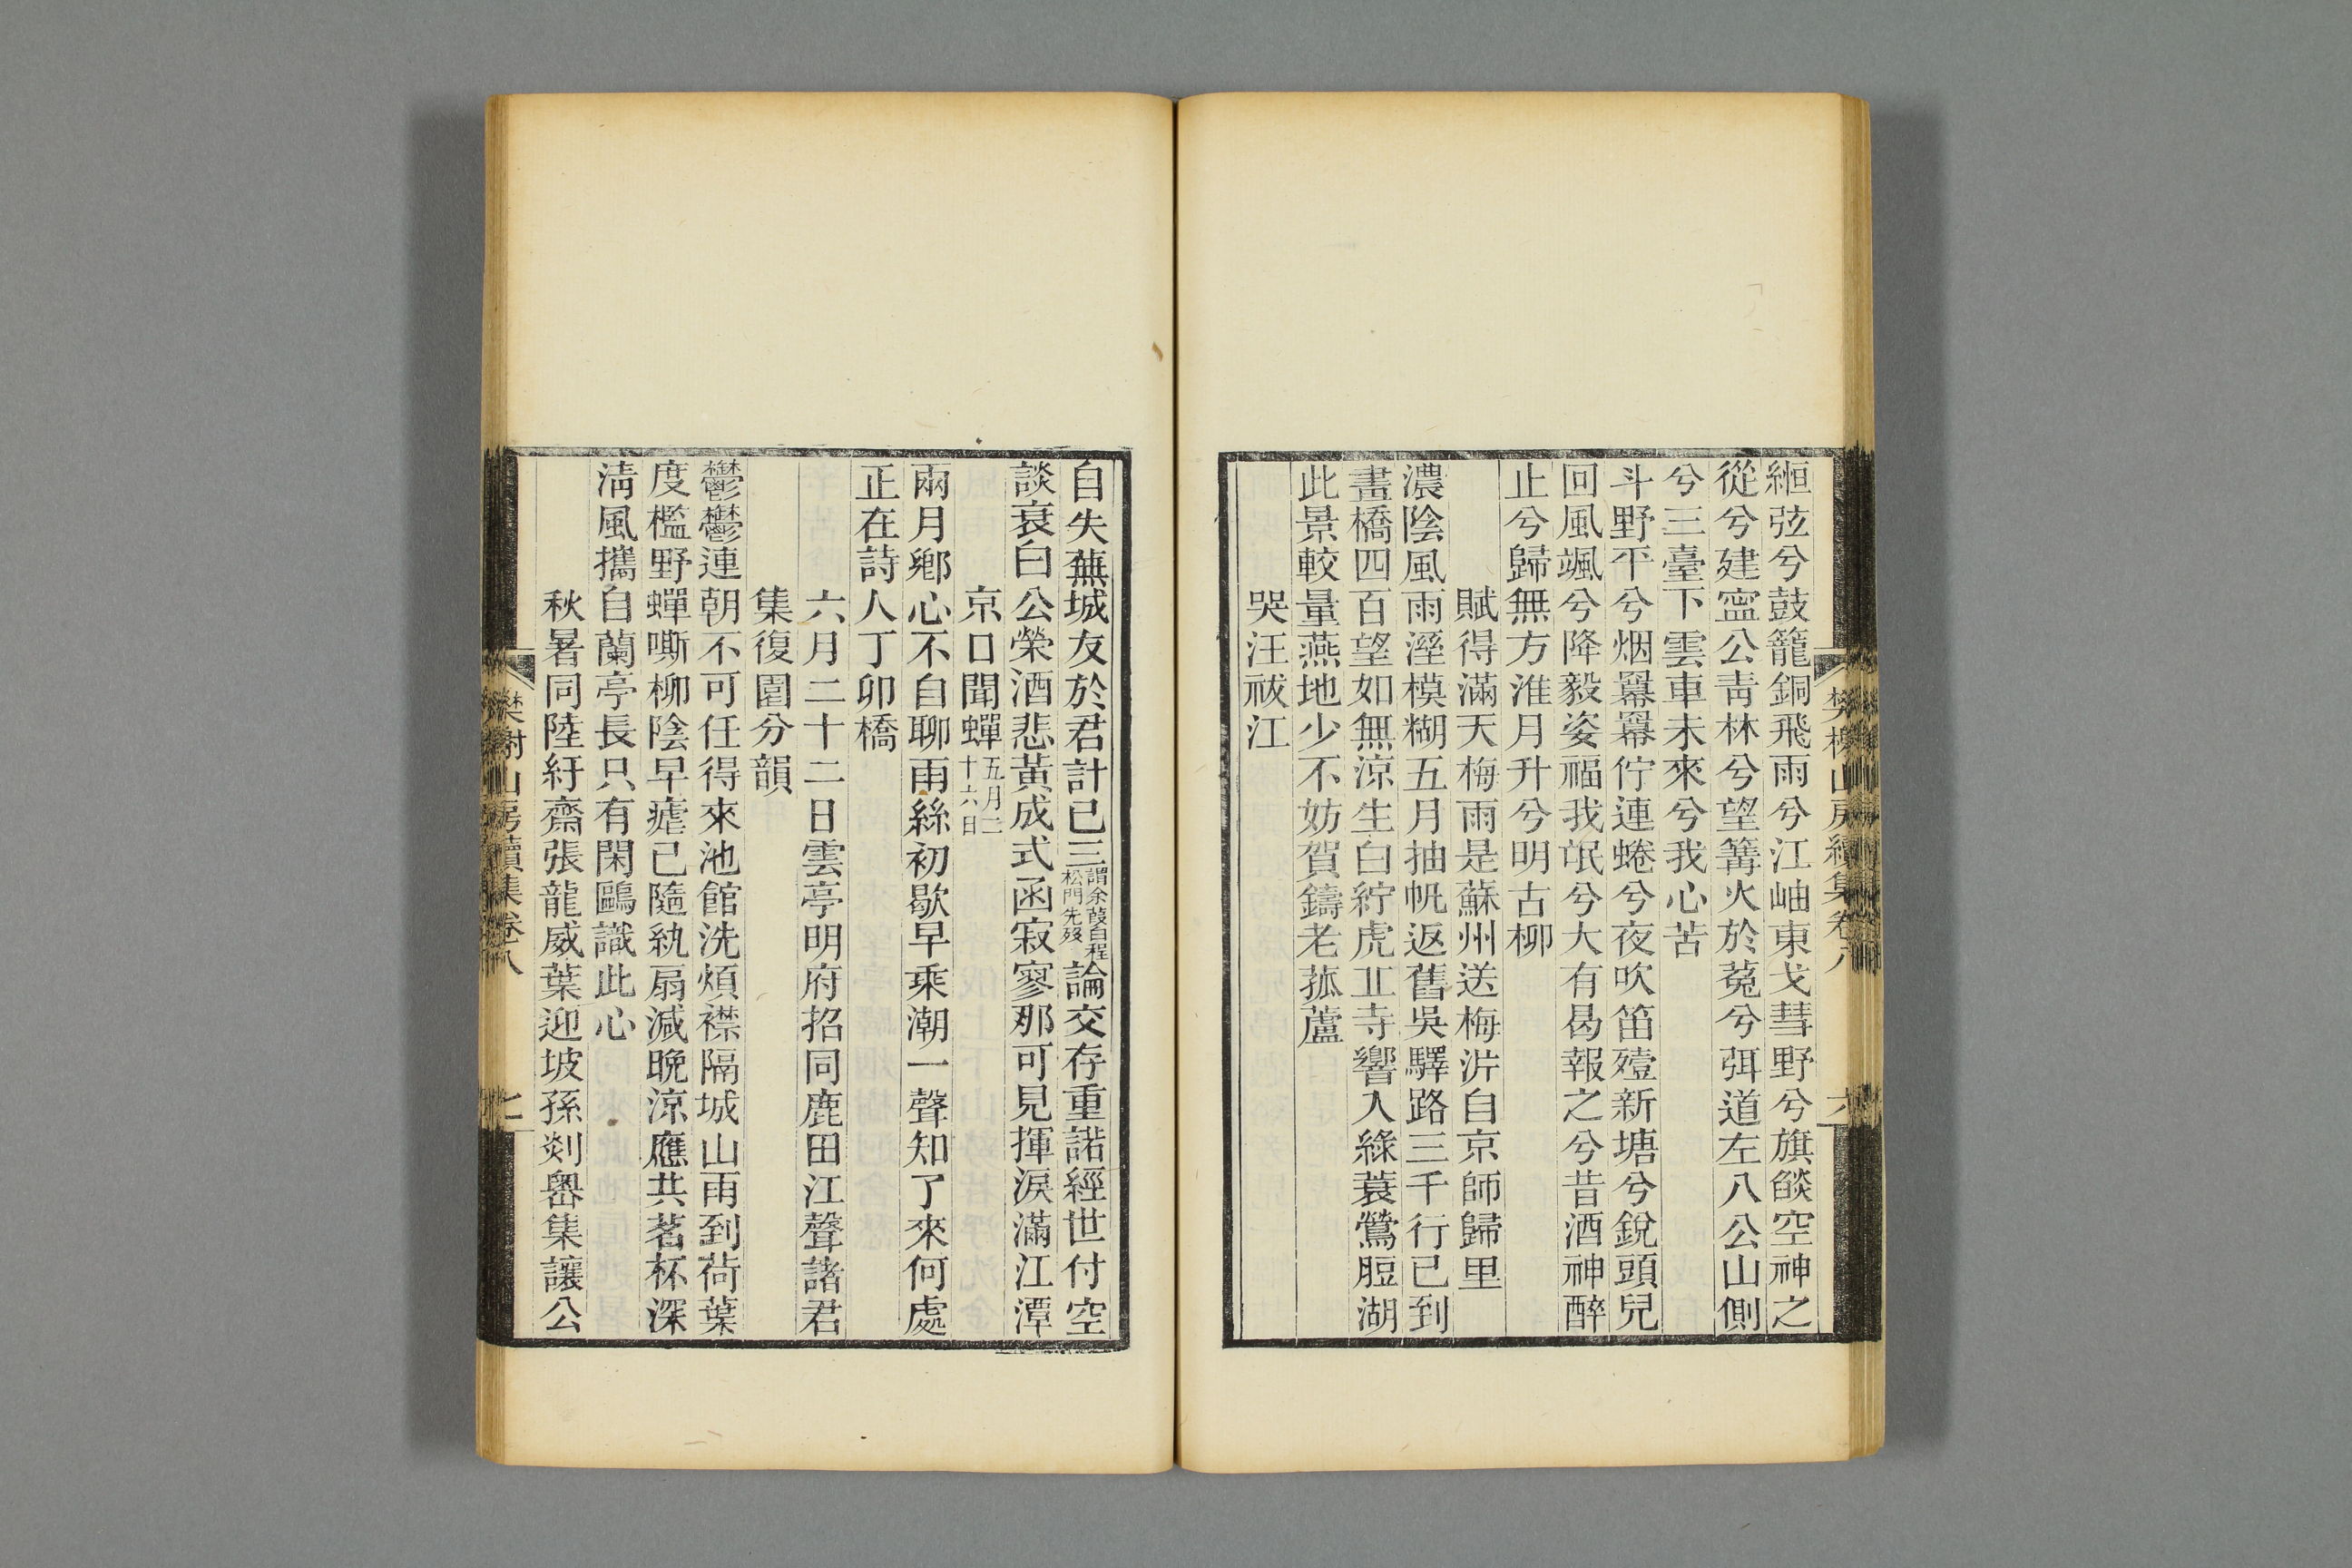 緪弦兮鼓籠銅飛雨兮江岫東戈彗野兮旗燄空神之
從兮建寍公靑林兮望篝火於菟兮弭道左八公山側
兮三臺下雲車未來兮我心苦
斗野平兮烟羃羃佇連蜷兮夜吹笛殪新塘兮銳頭兒
回風颯兮降毅姿福我氓兮大有曷報之兮昔酒神醉
止兮歸無方淮月升兮明古柳
賦得滿天梅雨是蘇州送梅沜自京師歸里
濃陰風雨溼模糊五月抽帆返舊吳驛路三千行已到
畫橋四百望如無涼生白紵虎丠寺響入綠蓑鶯脰湖
此景較量燕地少不妨賀鑄老菰蘆
哭汪祓江
樊榭山房續集卷八
六
自失蕪城友於君計已三謂余葭白程松門先歿論交存重諾經世付空
談衰白公榮酒悲黃成式函寂寥那可見揮淚滿江潭
京口聞蟬五月二十六日
兩月鄉心不自聊雨絲初歇早乘潮一聲知了來何處
正在詩人丁卯橋
六月二十二日雲亭明府招同鹿田江聲諸君
集復園分韻
鬱鬱連朝不可任得來池館洗煩襟隔城山雨到荷葉
度檻野蟬嘶柳陰早瘧已隨紈扇減晚涼應共茗杯深
淸風攜自蘭亭長只有閑鷗識此心
秋暑同陸紆齋張龍威葉迎坡孫剡嶴集讓公
樊榭山房續集卷八
七